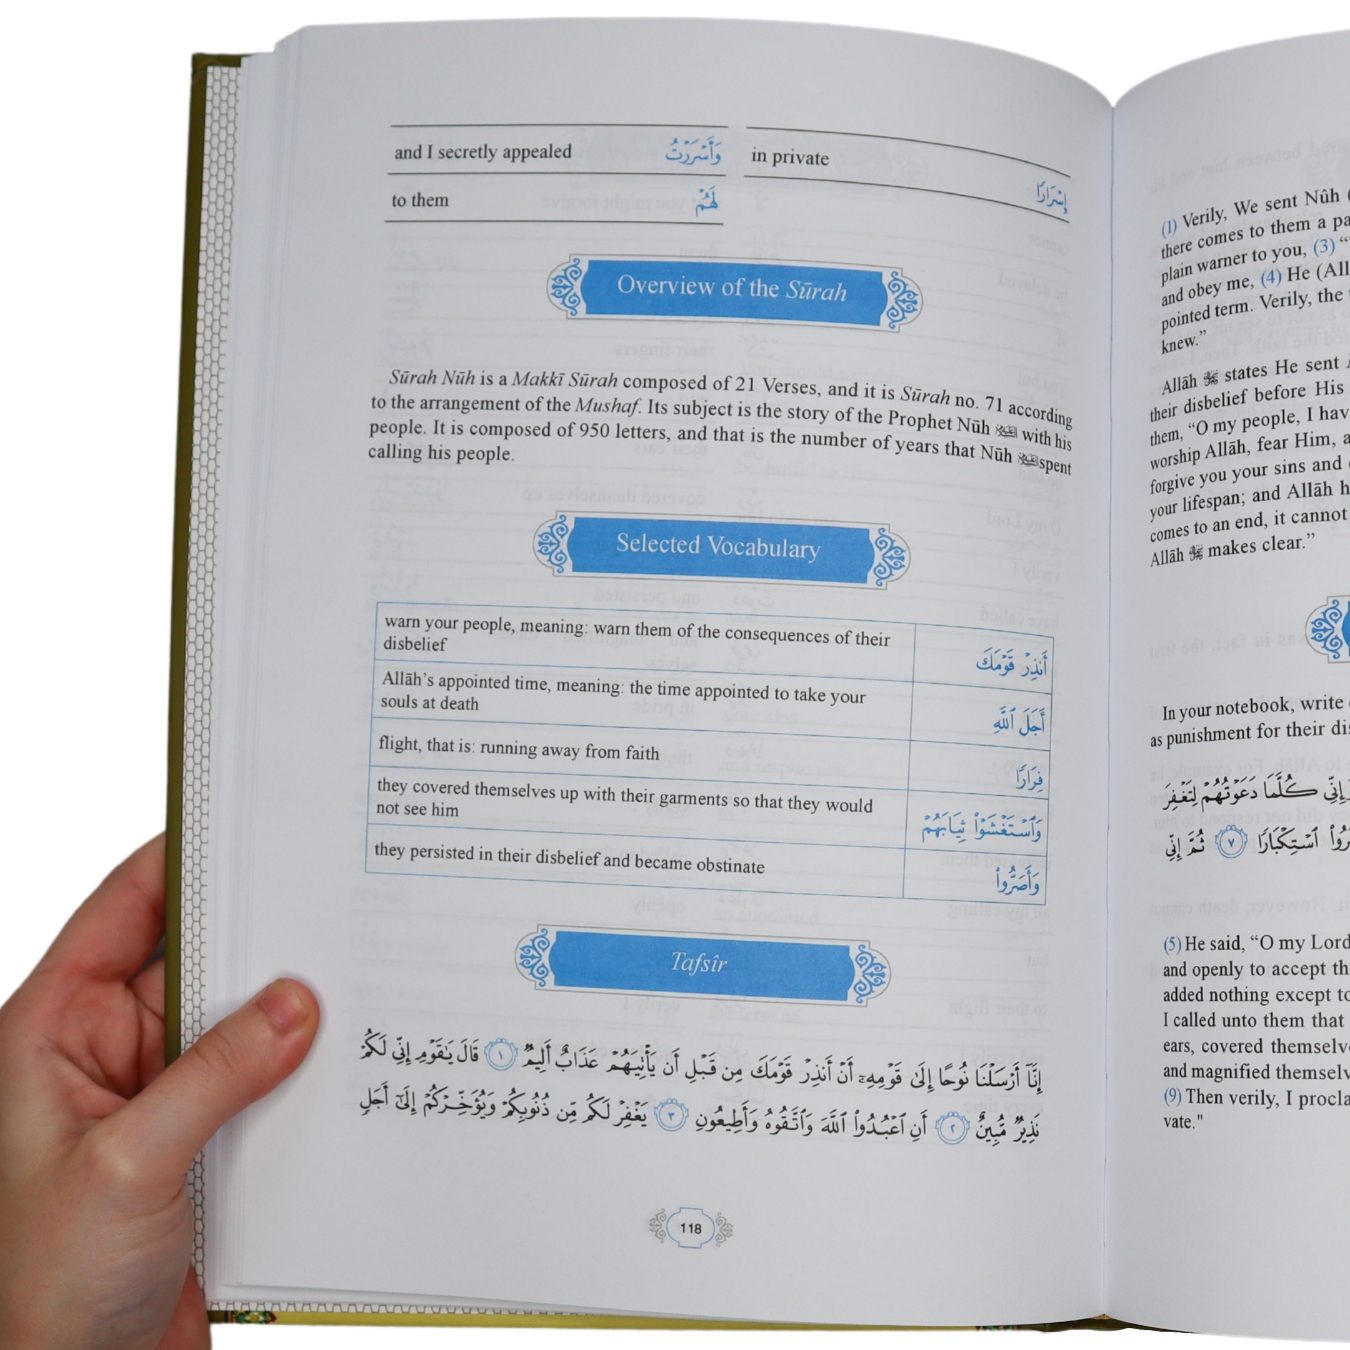 and I secretly appealed وَأَسۡرَرۡتُ in private إِسۡرَارٗا
to them لَهُمۡ
Overview of the Sūrah
Sūrah Nūh is a Makkī Sūrah composed of 21 Verses, and it is Sūrah no. 71 according
to the arrangement of the Mushaf. Its subject is the story of the Prophet Nūh with his
people. It is composed of 950 letters, and that is the number of years that Nūh spent
calling his people.
Selected Vocabulary
warn your people, meaning: warn them of the consequences of their
disbelief أَنذِرۡ قَوۡمَكَ
Allāh's appointed time, meaning: the time appointed to take your
souls at death أَجَلَ ٱللَّهِ
flight, that is: running away from faith فِرَارٗا
they covered themselves up with their garments so that they would
not see him وَٱسۡتَغۡشَوۡاْ ثِيَابَهُمۡ
they persisted in their disbelief and became obstinate وَأَصَرُّواْ
Tafsîr
إِنَّآ أَرۡسَلۡنَا نُوحًا إِلَىٰ قَوۡمِهِۦٓ أَنۡ أَنذِرۡ قَوۡمَكَ مِن قَبۡلِ أَن يَأۡتِيَهُمۡ عَذَابٌ أَلِيمٞ ١ قَالَ يَٰقَوۡمِ إِنِّي لَكُمۡ
نَذِيرٞ مُّبِينٌ ٢ أَنِ ٱعۡبُدُواْ ٱللَّهَ وَٱتَّقُوهُ وَأَطِيعُونِ ٣ يَغۡفِرۡ لَكُم مِّن ذُنُوبِكُمۡ وَيُؤَخِّرۡكُمۡ إِلَىٰٓ أَجَلٖ
118
(1) Verily, We sent Nûh
there comes to them a
plain warner to you, (3) “
and obey me, (4) He
pointed term. Verily, the
knew.”
Allāh ﷻ states He sent
their disbelief before His
them, “O my people, I
worship Allāh, fear Him,
forgive you your sins and
your lifespan; and Allāh
comes to an end, it cannot
Allāh ﷻ makes clear.”
In your notebook, write
as punishment for their
إِنِّي كُلَّمَا دَعَوۡتُهُمۡ لِتَغۡفِرَ
ٱسۡتِكۡبَارٗا ٧ ثُمَّ إِنِّي
(5) He said, “O my Lord
and openly to accept
added nothing except
I called unto them that
ears, covered
and magnified
(9) Then verily, I
vate."